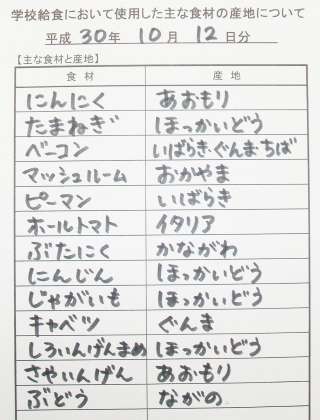 学校給食において使用した主な食材の産地について
平成 30年 10月 12日分
【主な食材と産地】
食材 産地
にんにく あおもり
たまねぎ ほっかいどう
ベーコン いばらき・ぐんま・ちば
マッシュルーム おかやま
ピーマン いばらき
ホールトマト イタリア
ぶたにく かながわ
にんじん ほっかいどう
じゃがいも ほっかいどう
キャベツ ぐんま
しろいんげんまめ ほっかいどう
さやいんげん あおもり
ぶどう ながの